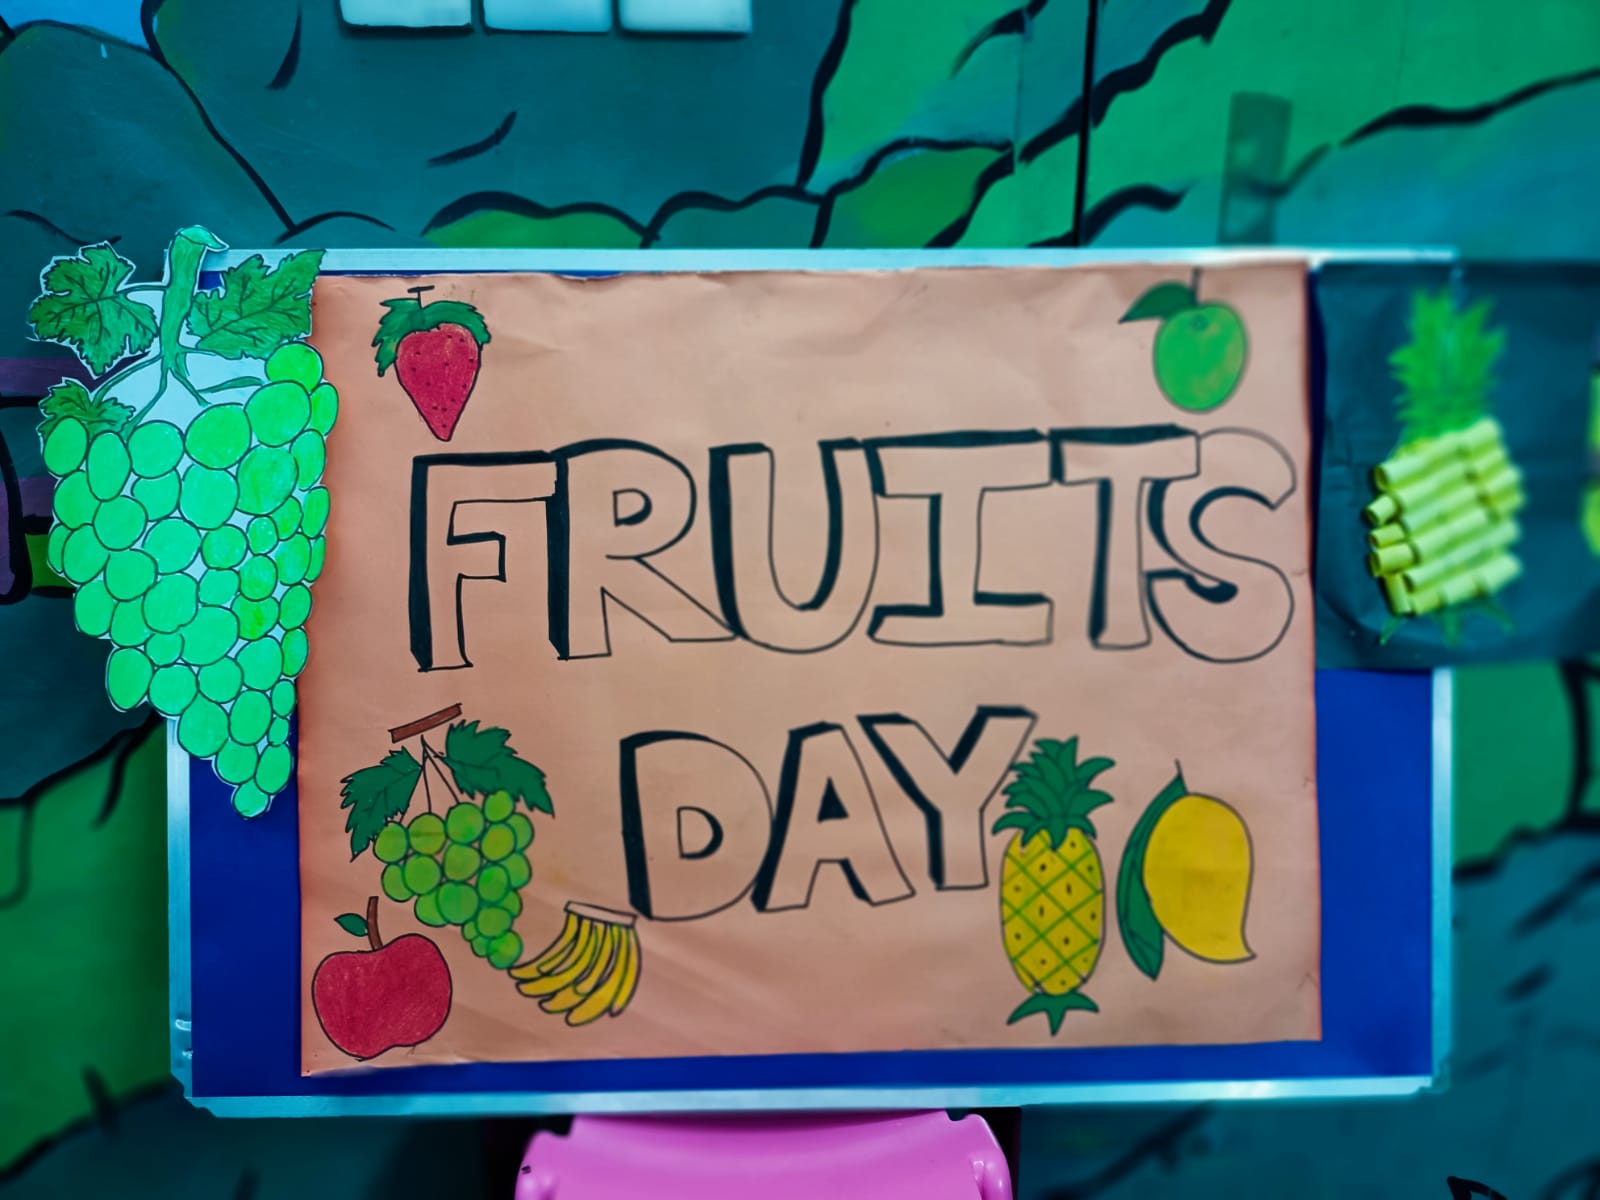 FRUITS
DAY